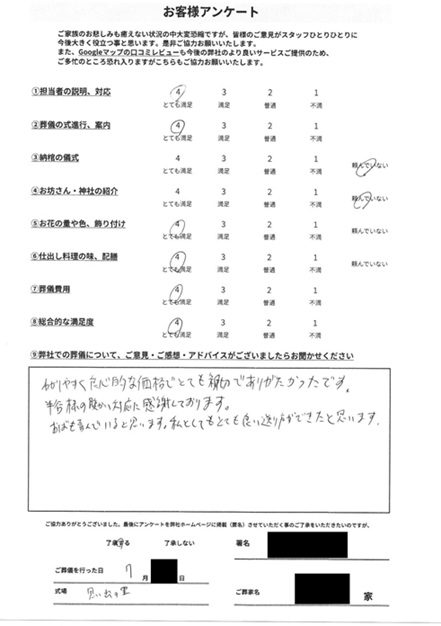 お客様アンケート
ご家族のお悲しみも癒えない状況の中大変恐縮ですが、皆様のご意見がスタッフひとりひとりに
今後大きく役立つ事と思います。是非ご協力お願いいたします。
また、Googleマップの口コミレビューも今後の弊社のより良いサービスご提供のため、
ご多忙のところ恐れ入りますがこちらもご協力お願いいたします。
①担当者の説明、対応 4 3 2 1
とても満足 満足 普通 不満
②葬儀の式進行、案内 4 3 2 1
とても満足 満足 普通 不満
③納棺の儀式 4 3 2 1
とても満足 満足 普通 不満 頼んでいない
④お坊さん・神社の紹介 4 3 2 1
とても満足 満足 普通 不満 頼んでいない
⑤お花の量や色、飾り付け 4 3 2 1
とても満足 満足 普通 不満 頼んでいない
⑥仕出し料理の味、配膳 4 3 2 1
とても満足 満足 普通 不満 頼んでいない
⑦葬儀費用 4 3 2 1
とても満足 満足 普通 不満
⑧総合的な満足度 4 3 2 1
とても満足 満足 普通 不満
⑨弊社での葬儀について、ご意見・ご感想・アドバイスがございましたらお聞かせください
わかりやすく良心的な価格でとても親切でありがたかったです。
様の暖かい対応に感謝しております。
おばも喜んでいると思います。私としてもとても良い送り方ができたと思います.
ご協力ありがとうございました。最後にアンケートを弊社ホームページに掲載（匿名）させていただく事のご了承をいただきたいのですが、
了承する 了承しない 署名
ご葬儀を行った日 7 月 日
式場 思い出の里 ご葬家名 家